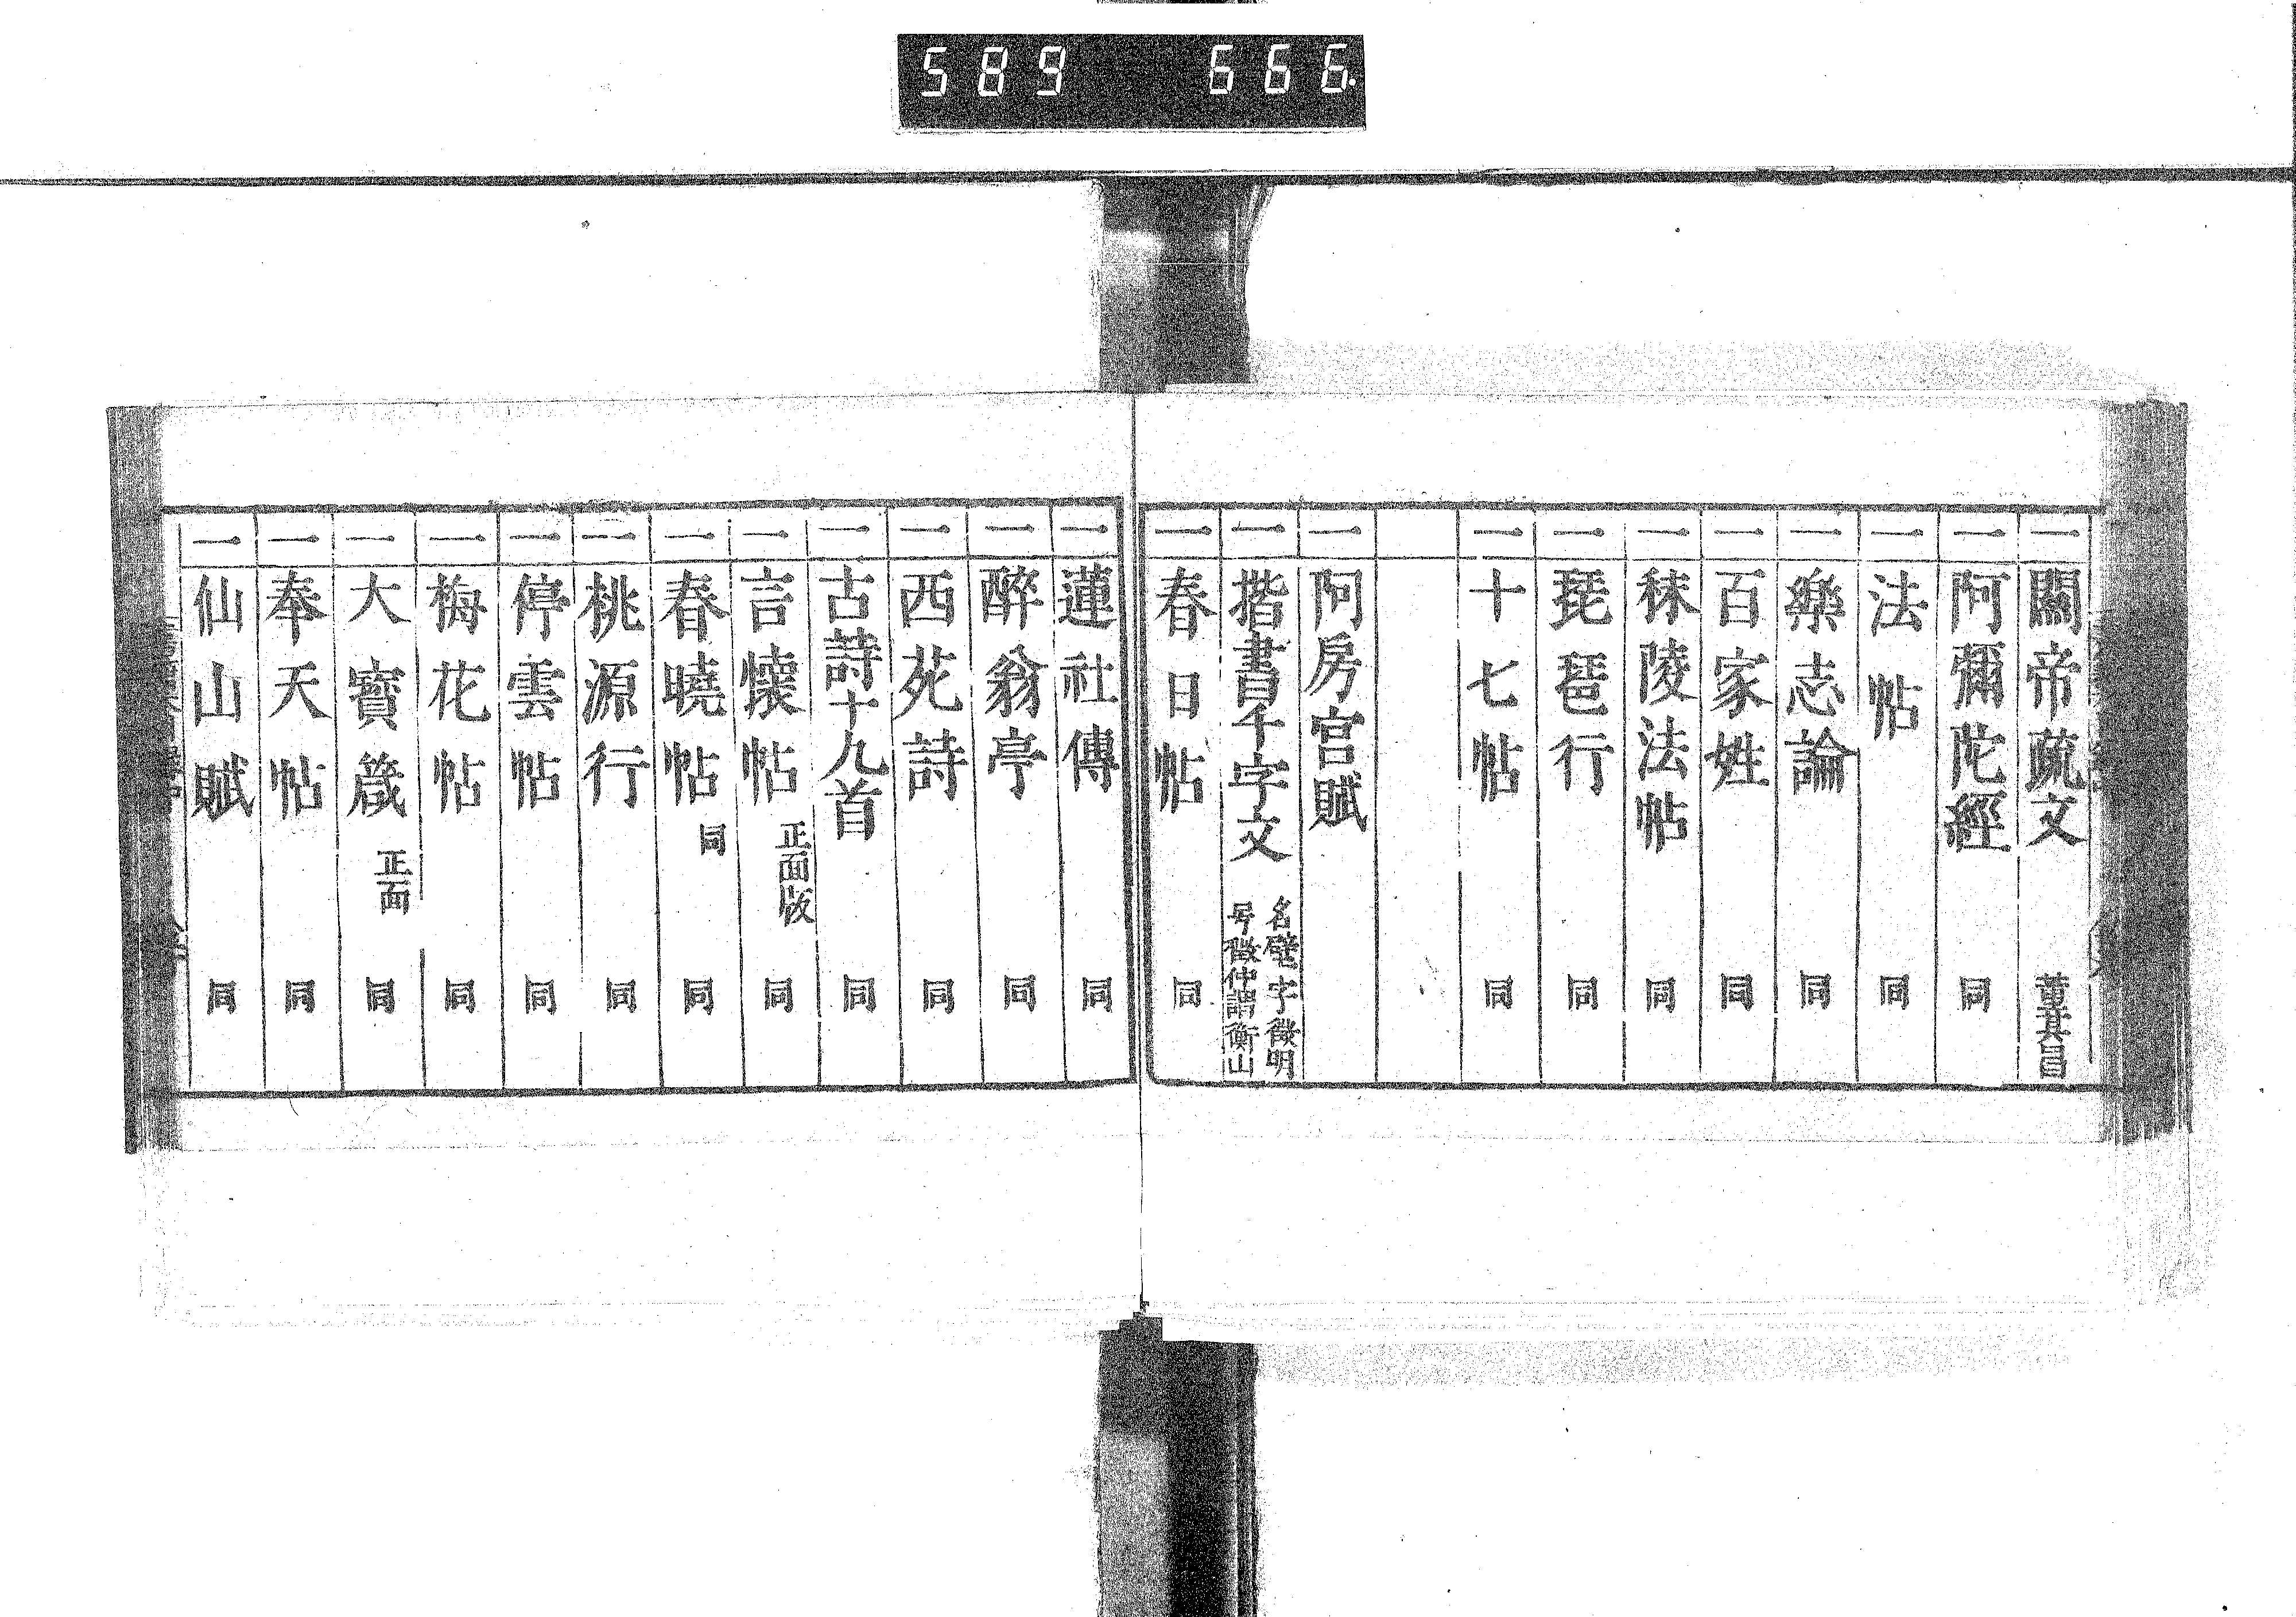 589 666.
一 關帝疏文 董其昌
一 阿彌陀經 同
一 法帖 同
一 樂志論 同
一 百家姓 同
一 秣陵法帖 同
一 琵琶行 同
一 十七帖 同
一 阿房宮賦
一 揩書千字文 名壁字徴明
号徴仲謂衡山
一 春日帖 同
一 蓮社傳 同
一 醉翁亭 同
一 西苑詩 同
一 古詩十九首 同
一 言懷帖 正面版 同
一 春曉帖 同 同
一 桃源行 同
一 停雲帖 同
一 梅花帖 同
一 大寶箴 正面 同
一 奉天帖 同
一 仙山賦 同